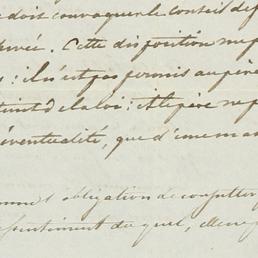 dois convoquer le conseil de f
privée. Cette disposition ne p
: il n'est pas permis au père
de la loi : Si le père ne p
éventualité, que d'une ma
obligation de consulter
sentiment duquel, elle ne p